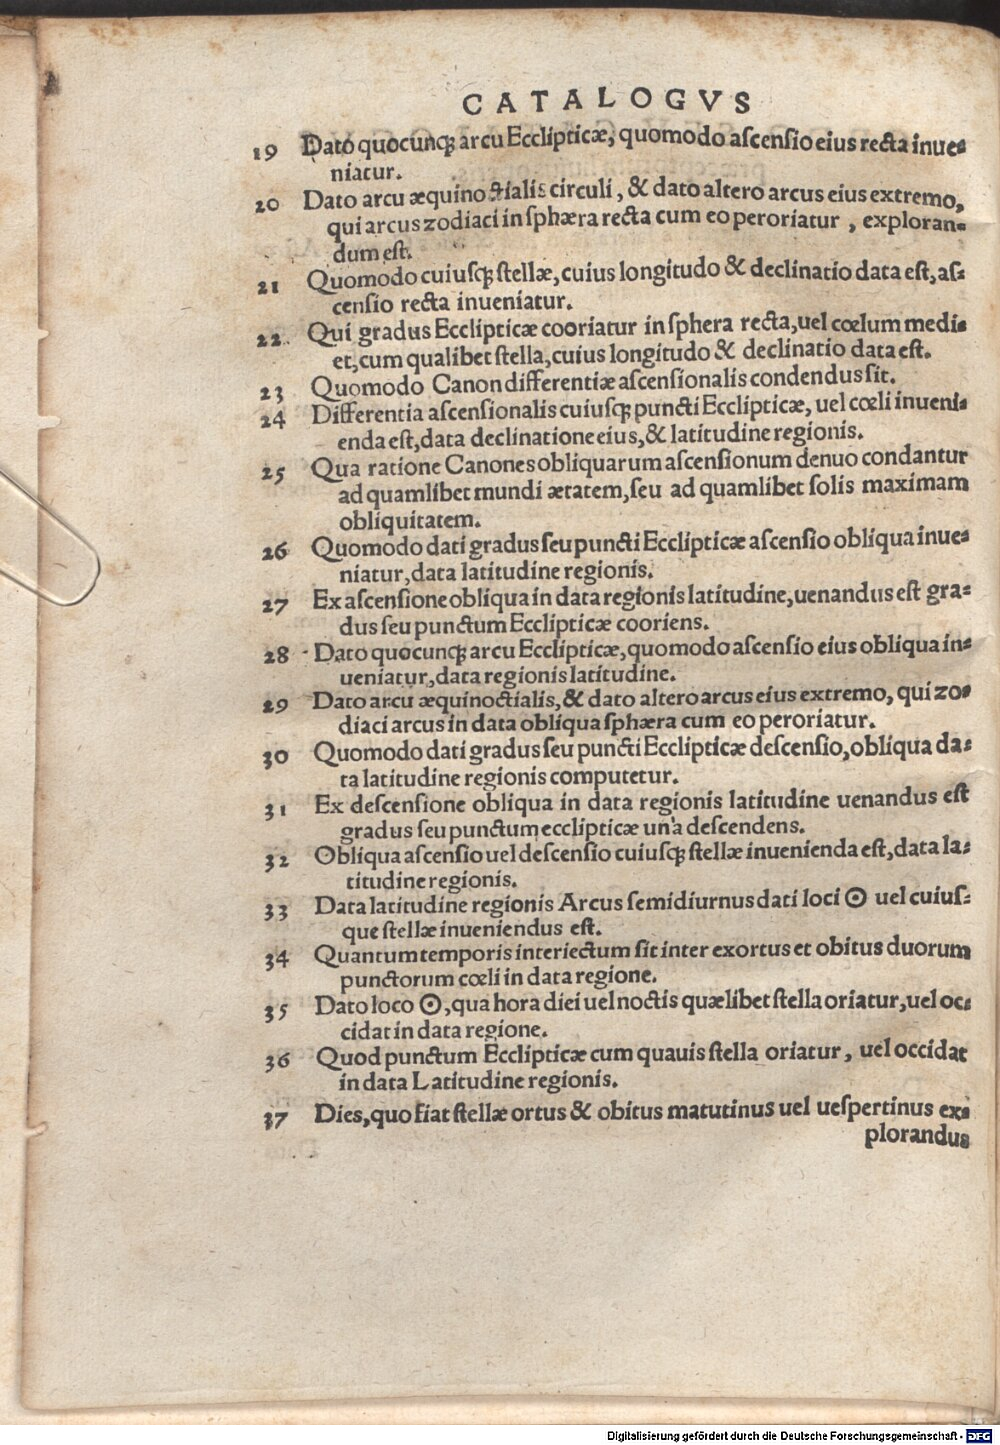 CATALOGVS
19 Dato quocunqꝫ arcu Ecclipticæ, quomodo aſcenſio eius recta inue⸗
niatur.
20 Dato arcu æquinoctialis circuli, & dato altero arcus eius extremo,
qui arcus zodiaci in ſphæra recta cum eo peroriatur, exploran⸗
dum eſt.
21 Quomodo cuiuſqꝫ ſtellæ, cuius longitudo & declinatio data eſt, aſ⸗
cenſio recta inueniatur.
22 Qui gradus Ecclipticæ cooriatur in ſphera recta, uel cœlum medi⸗
et, cum qualibet ſtella, cuius longitudo & declinatio data eſt.
23 Quomodo Canon differentiæ aſcenſionalis condendus ſit.
24 Differentia aſcenſionalis cuiuſqꝫ puncti Ecclipticæ, uel cœli inueni⸗
enda eſt, data declinatione eius, & latitudine regionis.
25 Qua ratione Canones obliquarum aſcenſionum denuo condantur
ad quamlibet mundi ætatem, ſeu ad quamlibet ſolis maximam
obliquitatem.
26 Quomodo dati gradus ſeu puncti Ecclipticæ aſcenſio obliqua inue⸗
niatur, data latitudine regionis.
27 Ex aſcenſione obliqua in data regionis latitudine, uenandus eſt gra⸗
dus ſeu punctum Ecclipticæ cooriens.
28 Dato quocunqꝫ arcu Ecclipticæ, quomodo aſcenſio eius obliqua in⸗
ueniatur, data regionis latitudine.
29 Dato arcu æquinoctialis, & dato altero arcus eius extremo, qui zo⸗
diaci arcus in data obliqua ſphæra cum eo peroriatur.
30 Quomodo dati gradus ſeu puncti Ecclipticæ deſcenſio, obliqua da⸗
ta latitudine regionis computetur.
31 Ex deſcenſione obliqua in data regionis latitudine uenandus eſt
gradus ſeu punctum ecclipticæ una deſcendens.
32 Obliqua aſcenſio uel deſcenſio cuiuſqꝫ ſtellæ inuenienda eſt, data la⸗
titudine regionis.
33 Data latitudine regionis Arcus ſemidiurnus dati loci ☉ uel cuiuſ⸗
que ſtellæ inueniendus eſt.
34 Quantum temporis interiectum ſit inter exortus et obitus duorum
punctorum cœli in data regione.
35 Dato loco ☉, qua hora diei uel noctis quælibet ſtella oriatur, uel oc⸗
cidat in data regione.
36 Quod punctum Ecclipticæ cum quauis ſtella oriatur, uel occidat
in data Latitudine regionis.
37 Dies, quo fiat ſtellæ ortus & obitus matutinus uel ueſpertinus ex⸗
plorandus
Digitalisierung gefördert durch die Deutsche Forschungsgemeinschaft - DFG